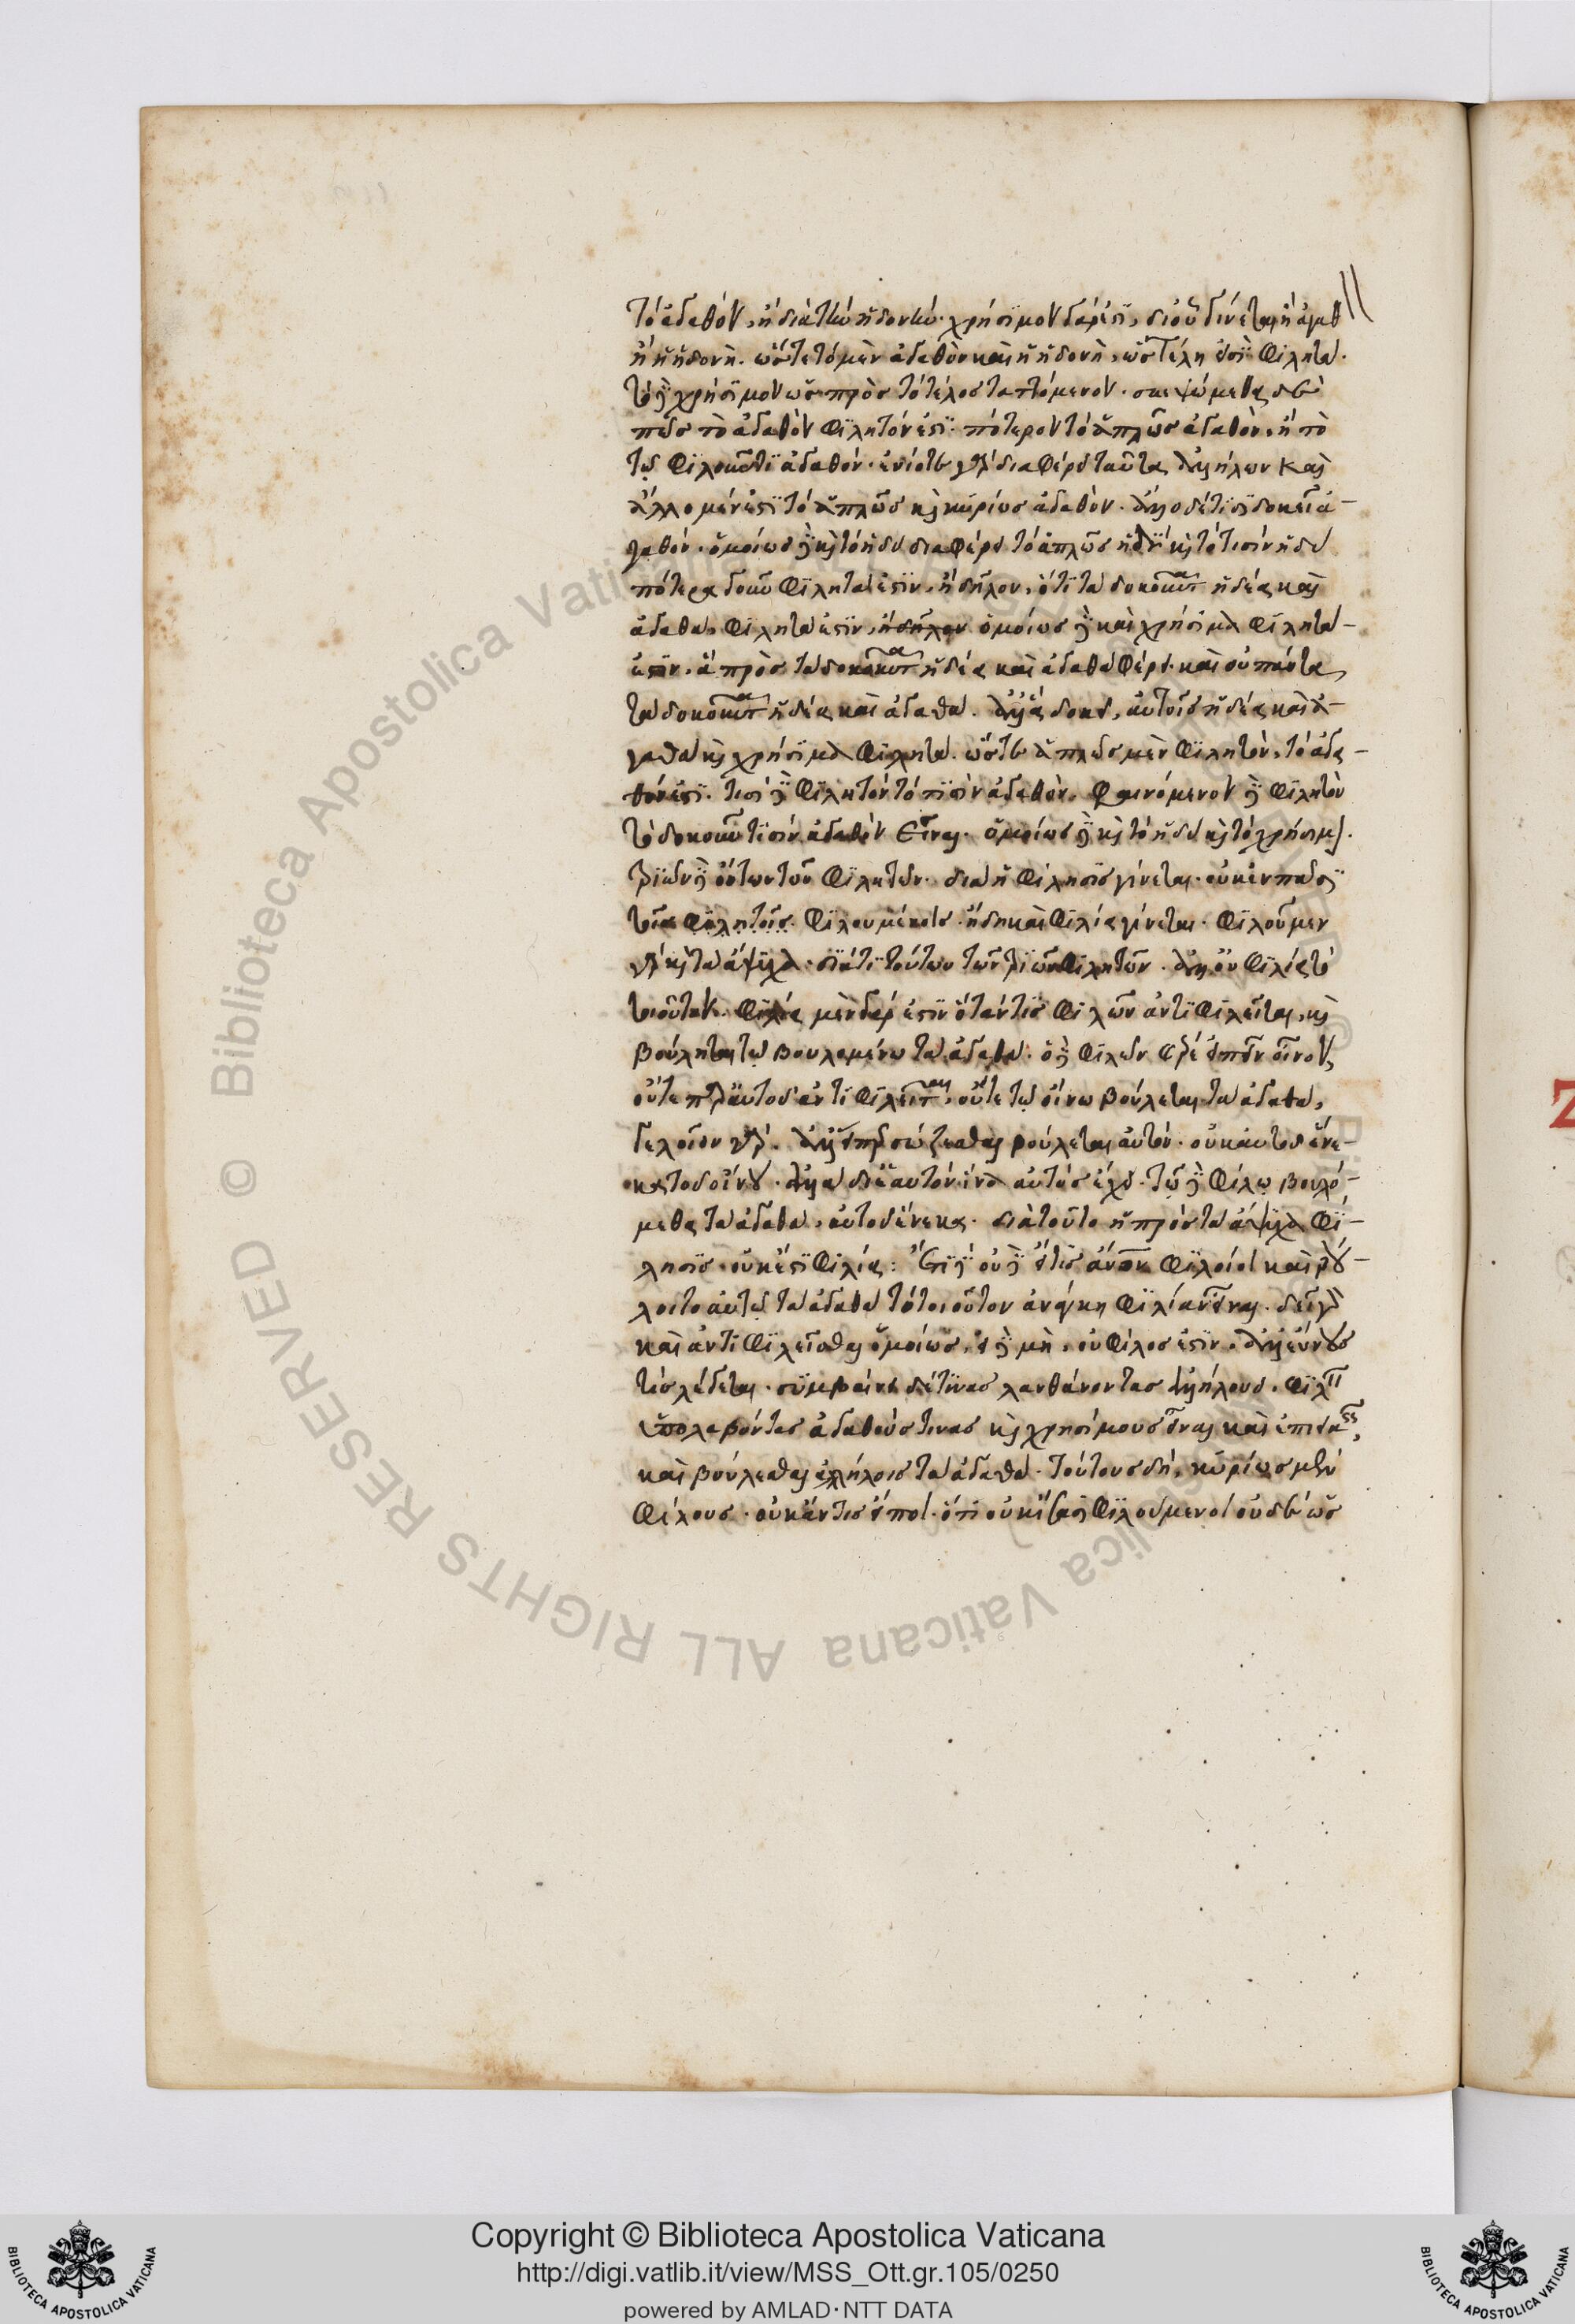 τὸ ἀγαθόν, ἢ διὰ τὴν ἡδονήν. χρήσιμον γάρ ἐστι, δι' οὗ γίνεται ἢ ἀγαθ
ἢ ἡ ἡδονή. ὥστε τὸ μὲν ἀγαθὸν καὶ ἡ ἡδονὴ, ὡς τέλη ἐστὶ φιλητά.
τὸ δὲ χρήσιμον ὡς πρὸς τὸ τέλος ταττόμενον. σκεψώμεθα δὲ
πῶς τὸ ἀγαθὸν φιλητόν ἐστι. πότερον τὸ ἁπλῶς ἀγαθὸν, ἢ τὸ
τῷ φιλοῦντι ἀγαθόν. ἐνίοτε γὰρ διαφέρει ταῦτα ἀλλήλων καὶ
ἄλλο μέν ἐστι τὸ ἁπλῶς καὶ κυρίως ἀγαθὸν. ἄλλο δέ τισι δοκεῖ ἀ-
γαθόν. ὁμοίως δὲ καὶ τὸ ἡδὺ διαφέρει τὸ ἁπλῶς ἡδὺ καὶ τὸ τισὶν ἡδύ
πότερα γοῦν φιλητά ἐστιν, ἢ δῆλον, ὅτι τὰ δοκοῦντα ἡδέα καὶ
ἀγαθὰ, φιλητά ἐστιν, ἢ δῆλον ὁμοίως δὲ καὶ χρήσιμα φιλητά-
ἐστιν. ἃ πρὸς τὰ δοκοῦντα ἡδέα καὶ ἀγαθὰ φέρει. καὶ οὐ πάντα
τὰ δοκοῦντα ἡδέα καὶ ἀγαθά. ἀλλ' ἃ δοκεῖ, αὐτοῖς ἡδέα καὶ ἀ-
γαθὰ καὶ χρήσιμα φιλητά. ὥστε ἁπλῶς μὲν φιλητὸν, τὸ ἀγα-
θόν ἐστι. τισὶ δὲ φιλητόν τὸ τισὶν ἀγαθὸν. φαινόμενον δὲ φιλητὸν
τὸ δοκοῦν τισὶν ἀγαθὸν εἶναι. ὁμοίως δὲ καὶ τὸ ἡδὺ καὶ τὸ χρήσιμον.
τριῶν δὲ ὄντων τῶν φιλητῶν. δι' ἃ ἡ φίλησις γίνεται. οὐκ ἐν πᾶσι
τοῖς φιλητοῖς φιλουμένοις. ἤδη καὶ φιλία γίνεται. φιλοῦμεν
γὰρ καὶ τὰ ἄψυχα. διά τι τούτων τῶν τριῶν φιλητῶν. ἀλλ' οὐ φιλία τὸ
τοιοῦτον. φιλία μὲν γάρ ἐστιν ὅταν τις φιλῶν ἀντιφιλεῖται, καὶ
βούληται τῷ βουλομένῳ τὰ ἀγαθά. ὁ δὲ φιλῶν φέρε εἰπεῖν οἶνον,
οὔτε παρ' αὐτοῦ ἀντιφιλεῖται, οὔτε τῷ οἴνῳ βούλεται τὰ ἀγαθά,
γελοῖον γάρ. ἀλλ' εἴπερ σώζεσθαι βούλεται αὐτόν. οὐκ αὐτοῦ ἕνε-
κα τοῦ οἴνου. ἀλλὰ δι' ἑαυτόν ἵνα αὐτὸς ἔχῃ. τῷ δὲ φίλῳ βουλό-
μεθα τὰ ἀγαθὰ, αὐτοῦ ἕνεκα. διὰ τοῦτο ἡ πρὸς τὰ ἄψυχα φί-
λησις. οὐκ ἔστι φιλία: Ἔτι δὲ οὐδὲ εἴ τις ἄνθρωπον φιλοίη καὶ βού-
λοιτο αὐτῷ τὰ ἀγαθὰ τὸ τοιοῦτον ἀνάγκη φιλίαν εἶναι. δεῖ γὰρ
καὶ ἀντιφιλεῖσθαι ὁμοίως, εἰ δὲ μὴ, οὐ φίλος ἐστὶν. ἀλλ' εὔνους
τις λέγεται. συμβαίνει δέ τινας λανθάνοντας ἀλλήλους. φιλ
ὑπολαβόντας ἀγαθούς τινας καὶ χρησίμους εἶναι καὶ ἐπιει
καὶ βούλεσθαι ἀλλήλοις τὰ ἀγαθά. τούτους δή, κυρίως μὲν
φίλους. οὐκ ἄν τις εἴποι. ὅτι οὐκ ἴσασι φιλούμενοι οὐδὲ ὡς
Copyright © Biblioteca Apostolica Vaticana
http://digi.vatlib.it/view/MSS_Ott.gr.105/0250
powered by AMLAD·NTT DATA